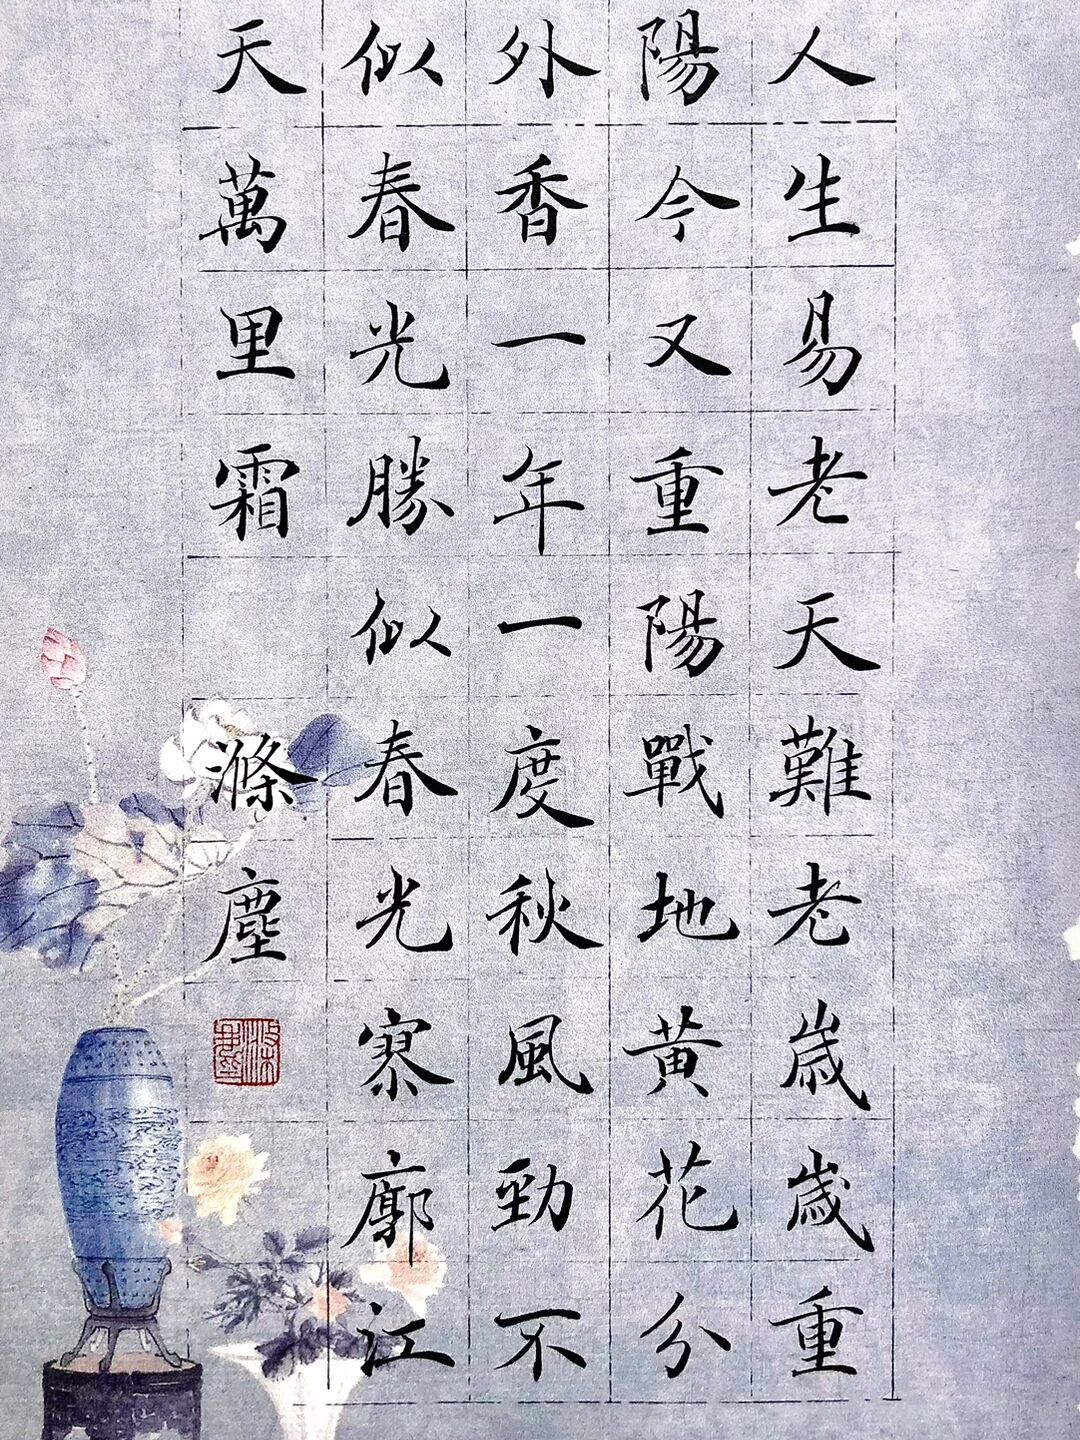 人生易老天難老歲歲重
陽今又重陽戰地黃花分
外香一年一度秋風勁不
似春光勝似春光寥廓江
天萬里霜
滌塵